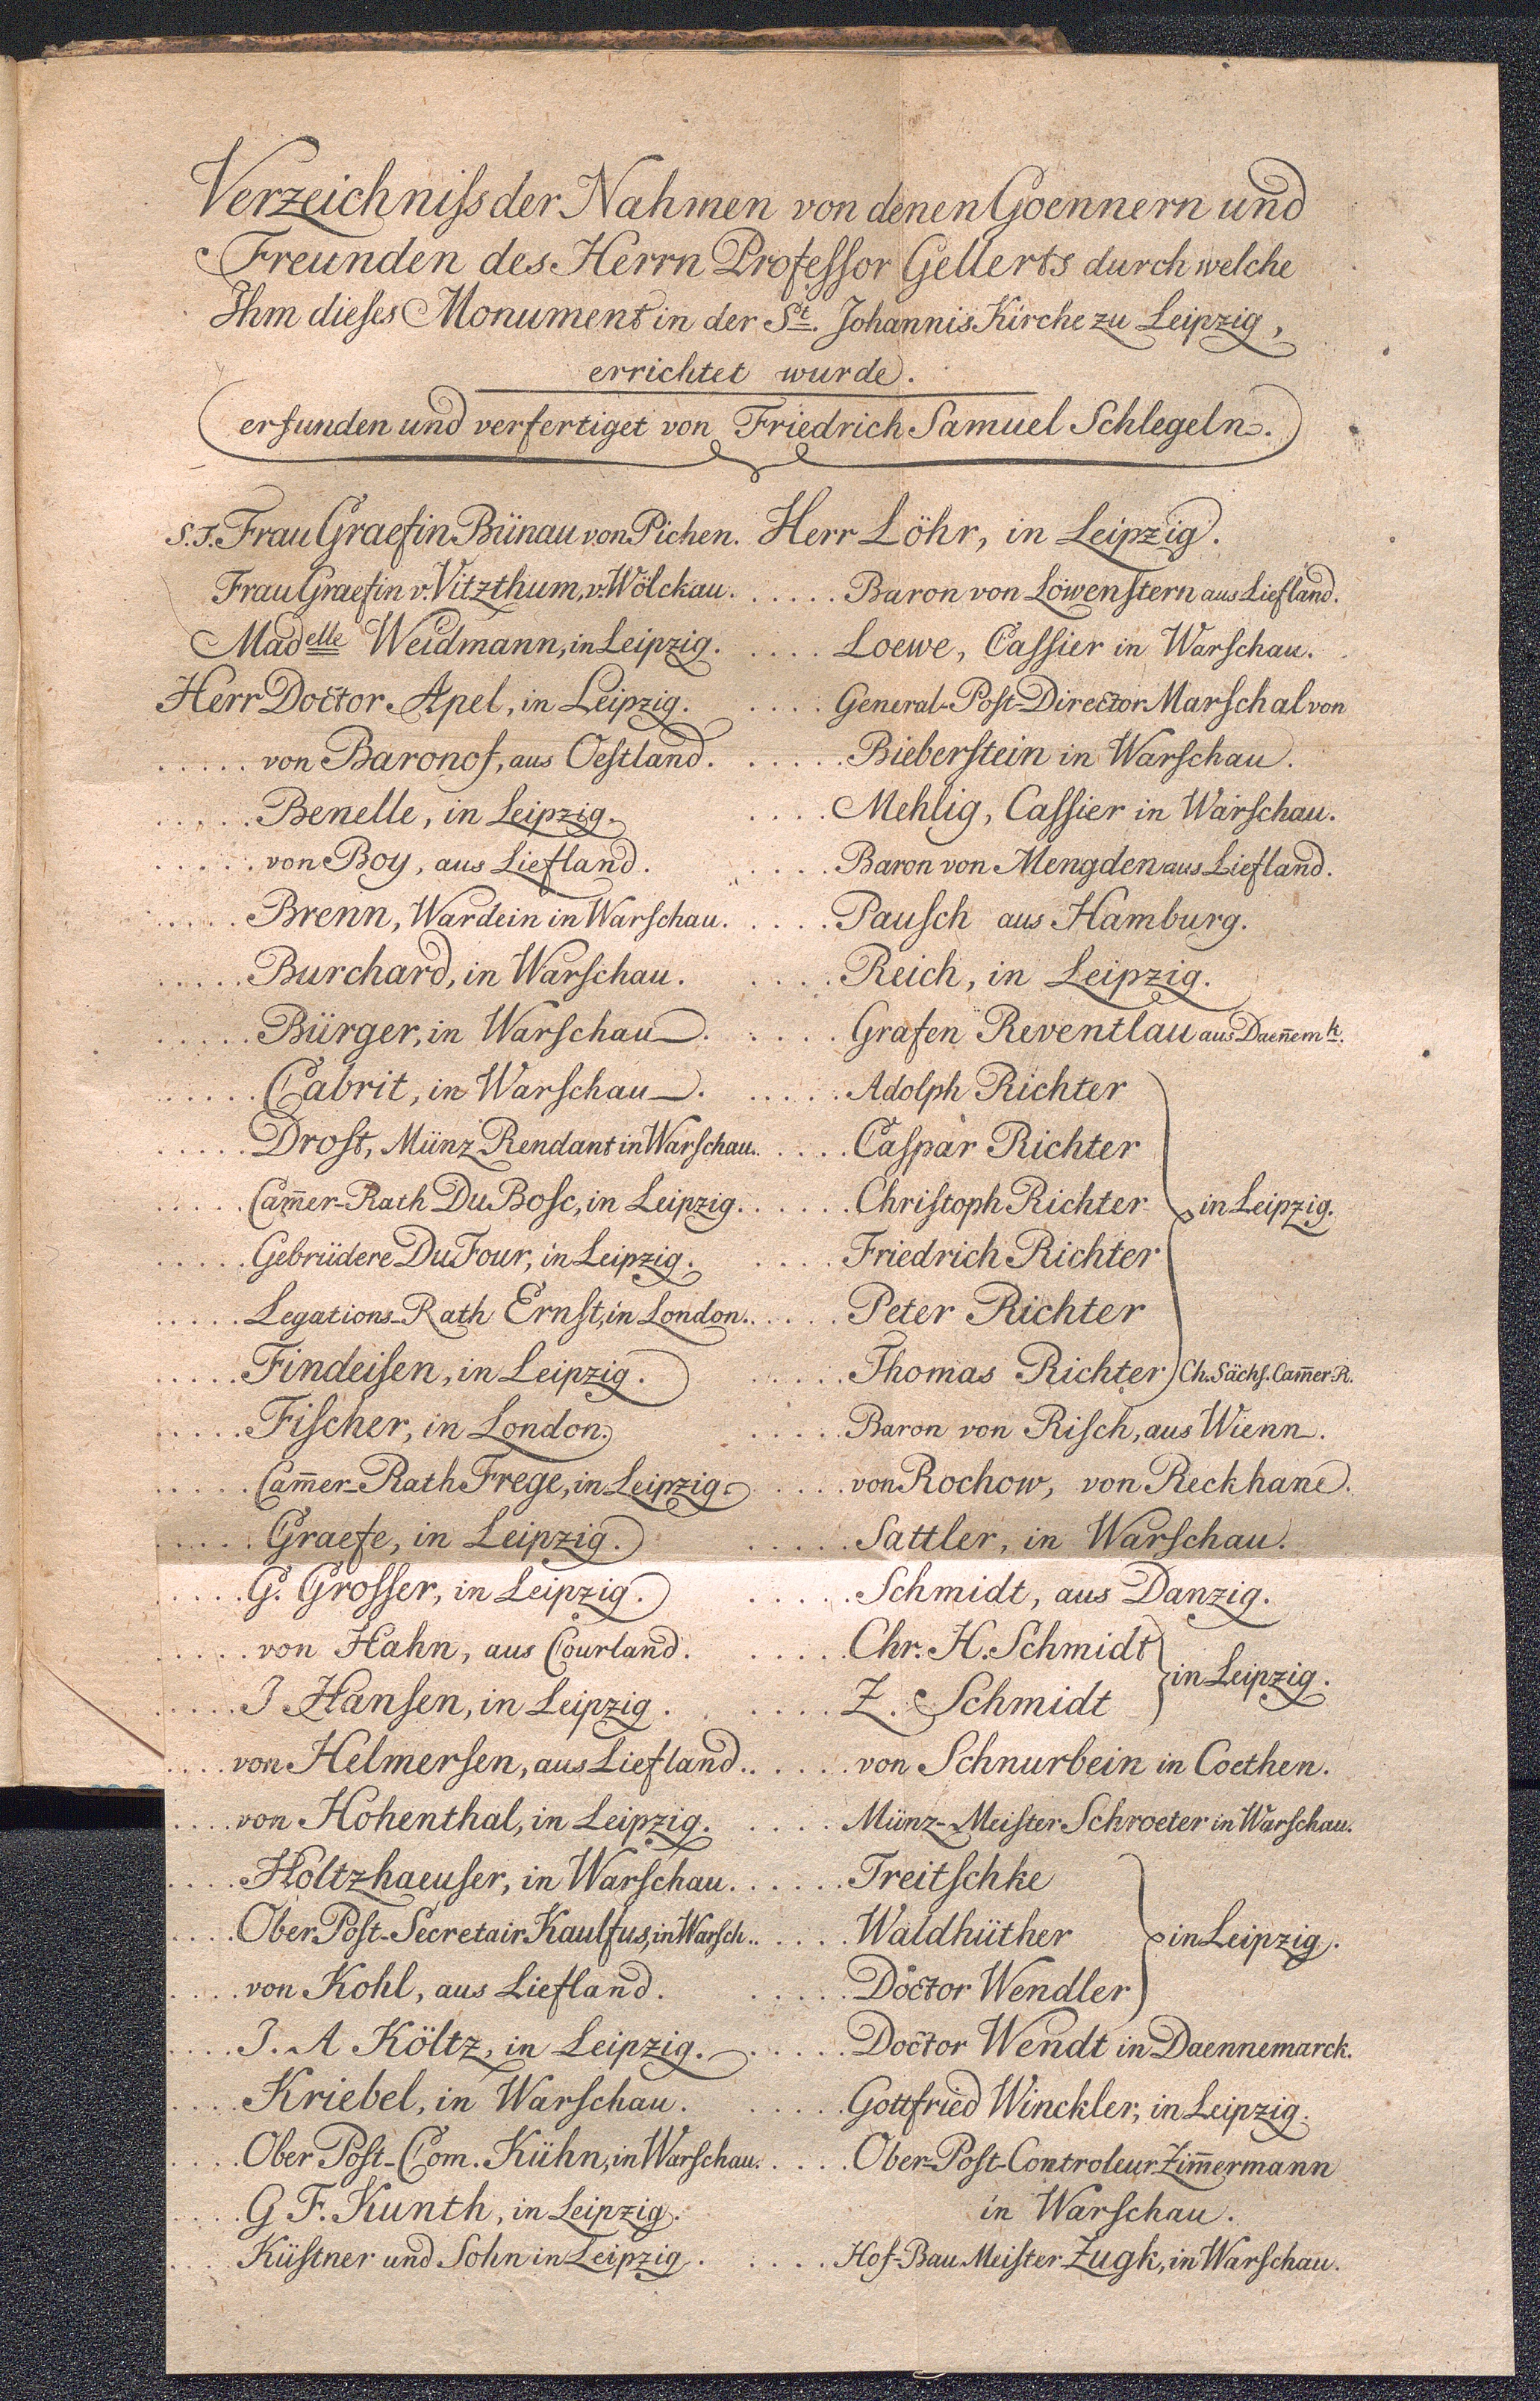 Verzeichniſs der Nahmen von denen Goennern und
Freunden des Herrn Profeſſor Gellerts durch welche
Ihm dieſes Monument in der St. Johannis Kirche zu Leipzig,
errichtet wurde.
erfunden und verfertiget von Friedrich Samuel Schlegeln.
S.T. Frau Graefin Bünau von Pichen.
Frau Graefin v. Vitzthum, v. Wölckau.
Madelle Weidmann, in Leipzig.
Herr Doctor Apel, in Leipzig.
..... von Baronof, aus Oeſtland.
..... Benelle, in Leipzig.
..... von Boy, aus Liefland.
..... Brenn, Wardein in Warſchau.
..... Burchard, in Warſchau.
..... Bürger, in Warſchau.
..... Cabrit, in Warſchau.
..... Droſt, Münz Rendant in Warſchau.
..... Cam̅er-Rath Du Boſc, in Leipzig.
..... Gebrüdere Du Four, in Leipzig.
..... Legations-Rath Ernſt, in London.
..... Findeiſen, in Leipzig.
..... Fiſcher, in London.
..... Cam̅er-Rath Frege, in Leipzig.
..... Graefe, in Leipzig.
..... G. Groſſer, in Leipzig.
..... von Hahn, aus Courland.
..... J Hanſen, in Leipzig.
.... von Helmerſen, aus Liefland.
.... von Hohenthal, in Leipzig.
.... Holtzhaeuſer, in Warſchau.
.... Ober Poſt-Secretair Kaulfus, in Warſch.
.... von Kohl, aus Liefland.
.... J. A Költz, in Leipzig.
.... Kriebel, in Warſchau.
.... Ober Poſt-Com. Kühn, in Warſchau.
.... G F. Kunth, in Leipzig.
.... Küſtner und Sohn in Leipzig.
Herr Löhr, in Leipzig.
..... Baron von Löwenſtern aus Liefland.
.... Loewe, Caſſier in Warſchau.
.... General-Poſt-Director Marſchal von
..... Bieberſtein in Warſchau.
.... Mehlig, Caſſier in Warſchau.
.... Baron von Mengden aus Liefland.
.... Pauſch aus Hamburg.
.... Reich, in Leipzig.
..... Grafen Reventlau aus Daen̅emk.
..... Adolph Richter
.... Caſpar Richter
..... Chriſtoph Richter in Leipzig.
.... Friedrich Richter
.... Peter Richter
..... Thomas Richter Ch. Sächſ. Cam̅er-R.
..... Baron von Riſch, aus Wienn.
.... von Rochow, von Reckhane.
..... Sattler, in Warſchau.
..... Schmidt, aus Danzig.
..... Chr. H. Schmidt
in Leipzig.
.... Z. Schmidt
.... von Schnurbein in Coethen.
.... Münz-Meiſter Schroeter in Warſchau.
..... Treitſchke
.... Waldhüther in Leipzig.
..... Doctor Wendler
..... Doctor Wendt in Daennemarck.
..... Gottfried Winckler, in Leipzig.
.... Ober-Poſt-Controleur Zim̅ermann
in Warſchau.
.... Hof-Bau Meiſter Zugk, in Warſchau.